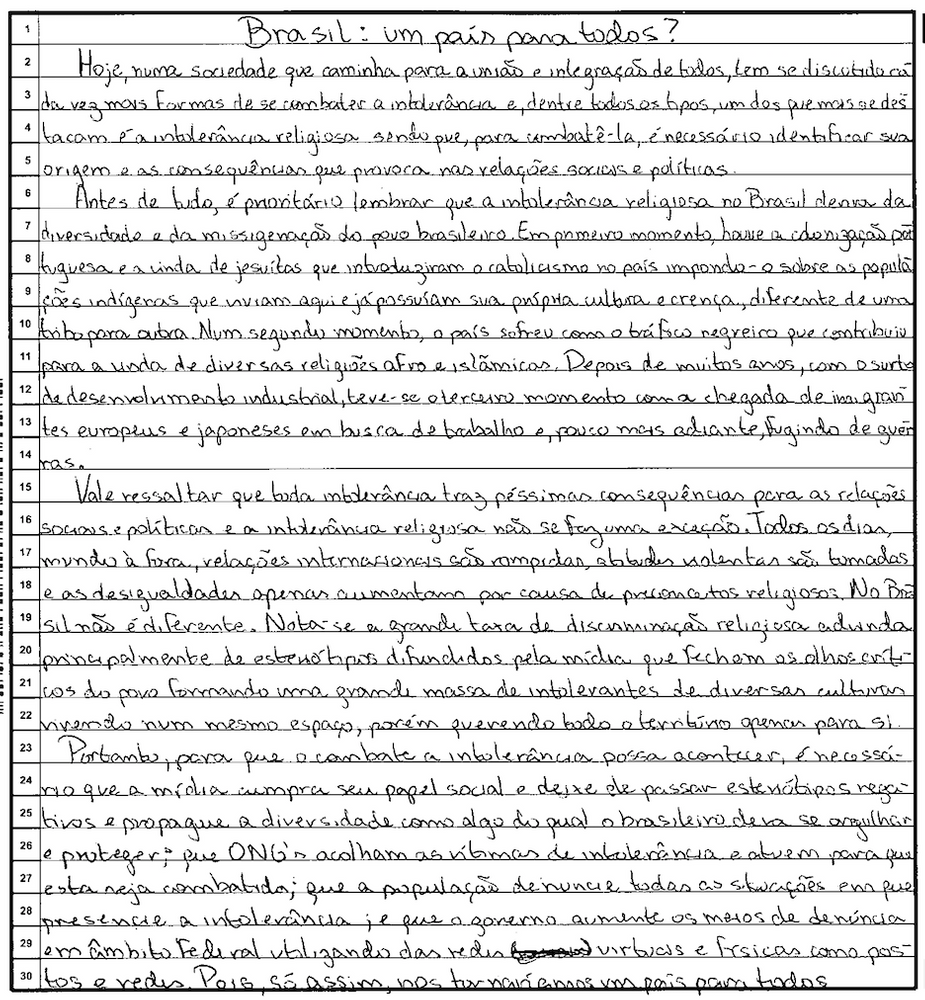 Brasil: um país para todos?
Hoje, numa sociedade que caminha para a união e integração de todos, tem se discutido ca
da vez mais formas de se combater a intolerância e, dentre todos os tipos, um dos que mais se des
tacam é a intolerância religiosa sendo que, para combatê-la, é necessário identificar sua
origem e as consequências que provoca nas relações sociais e políticas.
Antes de tudo, é prioritário lembrar que a intolerância religiosa no Brasil deriva da
diversidade e da missigenação do povo brasileiro. Em primeiro momento, houve a colonização por
tuguesa e a vinda de jesuítas que introduziram o catolicismo no país impondo-o sobre as popula
ções indígenas que viviam aqui e já possuíam sua própria cultura e crença, diferente de uma
tribo para outra. Num segundo momento, o país sofreu com o tráfico negreiro que contribuiu
para a vinda de diversas religiões afro e islâmicas. Depois de muitos anos, com o surto
de desenvolvimento industrial, teve-se o terceiro momento com a chegada de imigran
tes europeus e japoneses em busca de trabalho e, pouco mais adiante, fugindo de guer
ras.
Vale ressaltar que toda intolerância traz péssimas consequências para as relações
sociais e políticas e a intolerância religiosa não se faz uma exceção. Todos os dias,
mundo à fora, relações internacionais são rompidas, atitudes violentas são tomadas
e as desigualdades apenas aumentam por causa de preconceitos religiosos. No Bra
sil não é diferente. Nota-se a grande taxa de discriminação religiosa advinda
principalmente de esteriótipos difundidos pela mídia que fecham os olhos críti-
cos do povo formando uma grande massa de intolerantes de diversas culturas
vivendo num mesmo espaço, porém querendo todo o território apenas para si.
Portanto, para que o combate a intolerância possa acontecer, é necessá-
rio que a mídia cumpra seu papel social e deixe de passar esteriótipos nega-
tivos e propague a diversidade como algo do qual o brasileiro deva se orgulhar
e proteger; que ONG's acolham as vítimas de intolerância e atuem para que
esta seja combatida; que a população denuncie todas as situações em que
presencie a intolerância; e que o governo aumente os meios de denúncia
em âmbito Federal utilizando das redes virtuais e físicas como pos-
tos e redes. Pois, só assim, nos tornaríamos um país para todos